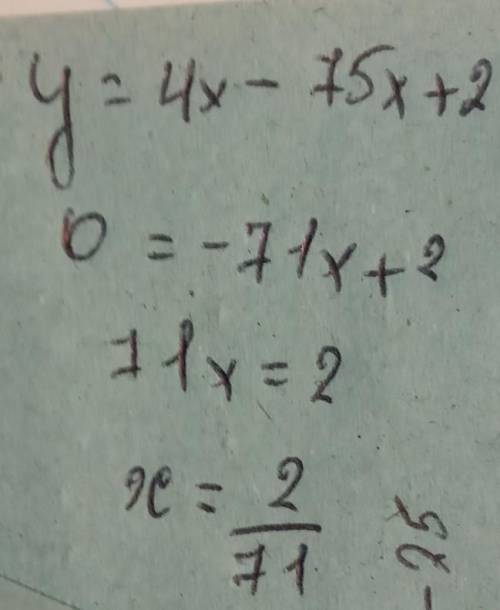 y = 4x - 75x + 2
0 = -71x + 2
71x = 2
x = 2/71
-75